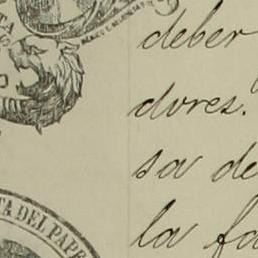 deber
dores.
sa de
la fa
TA DEL PAPE